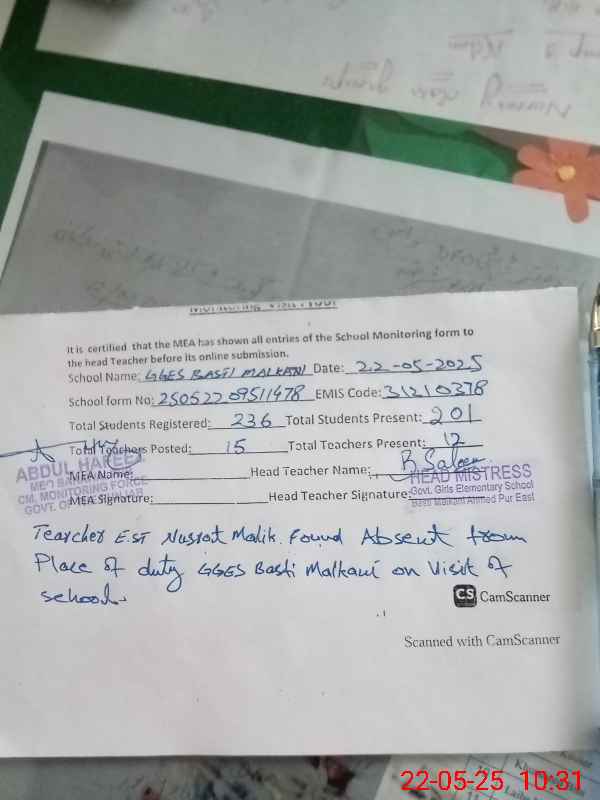 Nursery class groups
It is certified that the MEA has shown all entries of the School Monitoring form to
the head Teacher before its online submission.
School Name: GGES BASTI MALKANI Date: 22-05-2025
School form No: 25052209511478 EMIS Code: 31210378
Total Students Registered: 236 Total Students Present: 201
Total Teachers Posted: 15 Total Teachers Present: 12
MEA Name: Head Teacher Name: B. Saleem
ABDUL HAFEEZ
CM. MONITORING FORCE
GOVT. OF
HEAD MISTRESS
Govt. Girls Elementary School
Basti Malkani Ahmed Pur East
MEA Signature: Head Teacher Signature:
Tearcher EST Nusrat Malik. Found Absent from
Place of duty GGES Basti Malkani on Visit of
school.
CS CamScanner
Scanned with CamScanner
22-05-25 10:31